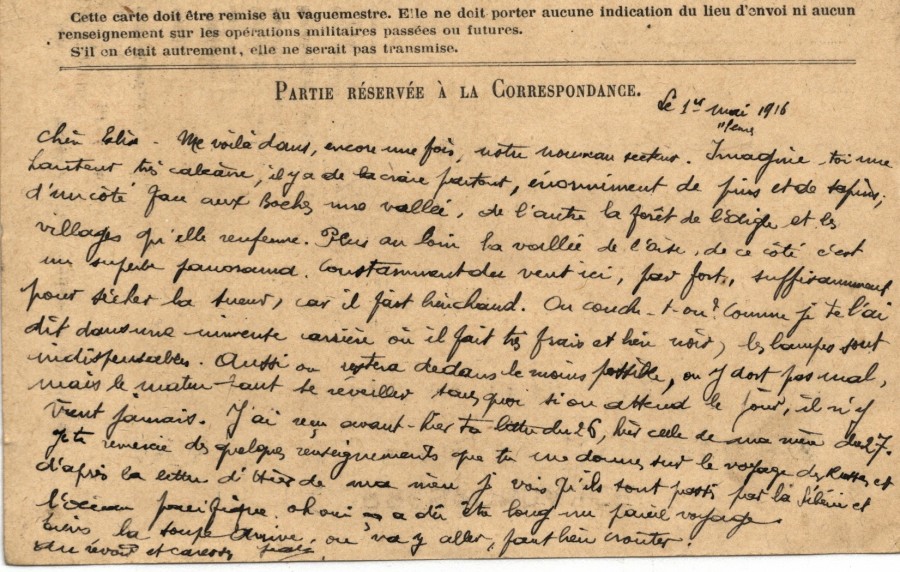 Cette carte doit être remise au vaguemestre. Elle ne doit porter aucune indication du lieu d'envoi ni aucun
renseignement sur les opérations militaires passées ou futures.
S'il en était autrement, elle ne serait pas transmise.
PARTIE RÉSERVÉE À LA CORRESPONDANCE.
Le 1er mai 1916
Me voilà dans, encore une fois, notre nouveau secteur. Imagine-toi une
hauteur très calcaire, il y a de la craie partout, énormément de pins et de sapins;
d'un côté face aux Boches une vallée, de l'autre la forêt de l'Aigle et les
villages qu'elle renferme. Plus au loin la vallée de l'Aise, de ce côté c'est
un superbe panorama. Constamment du vent ici, pas fort, suffisamment
pour sécher la sueur, car il fait bien chaud. Ou couche-t-on? Comme je te l'ai
dit dans une immense carrière où il fait très frais et bien noir, les lampes sont
indispensables. Aussi on restera dedans le moins possible, on y dort pas mal,
mais le matin faut se réveiller sans quoi si on attend le jour, il n'y
vient jamais. J'ai reçu avant-hier ta lettre du 26, hier celle de ma mère du 27.
Je te remercie des quelques renseignements que tu me donnes sur le voyage des Russes, et
d'après la lettre d'hier de ma mère je vois qu'ils sont passés par la Sibérie et
l'Océan pacifique. oh oui ça a dû être long un pareil voyage.
la soupe arrive, on va y aller, faut bien croûter.
au revoir et caresses